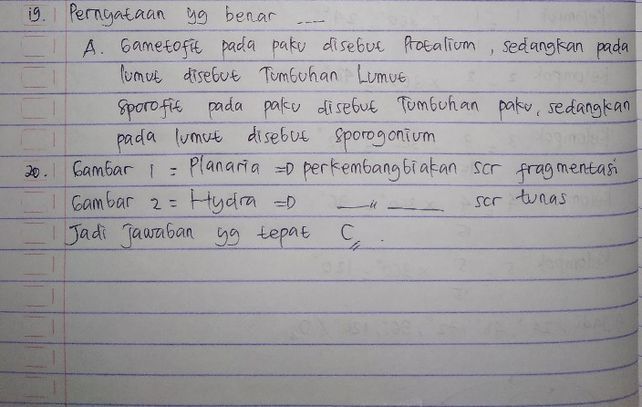 19. Pernyataan yg benar ....
A. Gametofit pada paku disebut Protalium, sedangkan pada
lumut disebut Tumbuhan Lumut
Sporofit pada paku disebut Tumbuhan paku, sedangkan
pada lumut disebut sporogonium
20. Gambar 1 = Planaria => perkembangbiakan scr fragmentasi
Gambar 2 = Hydra => —— " —— scr tunas
Jadi jawaban yg tepat C.